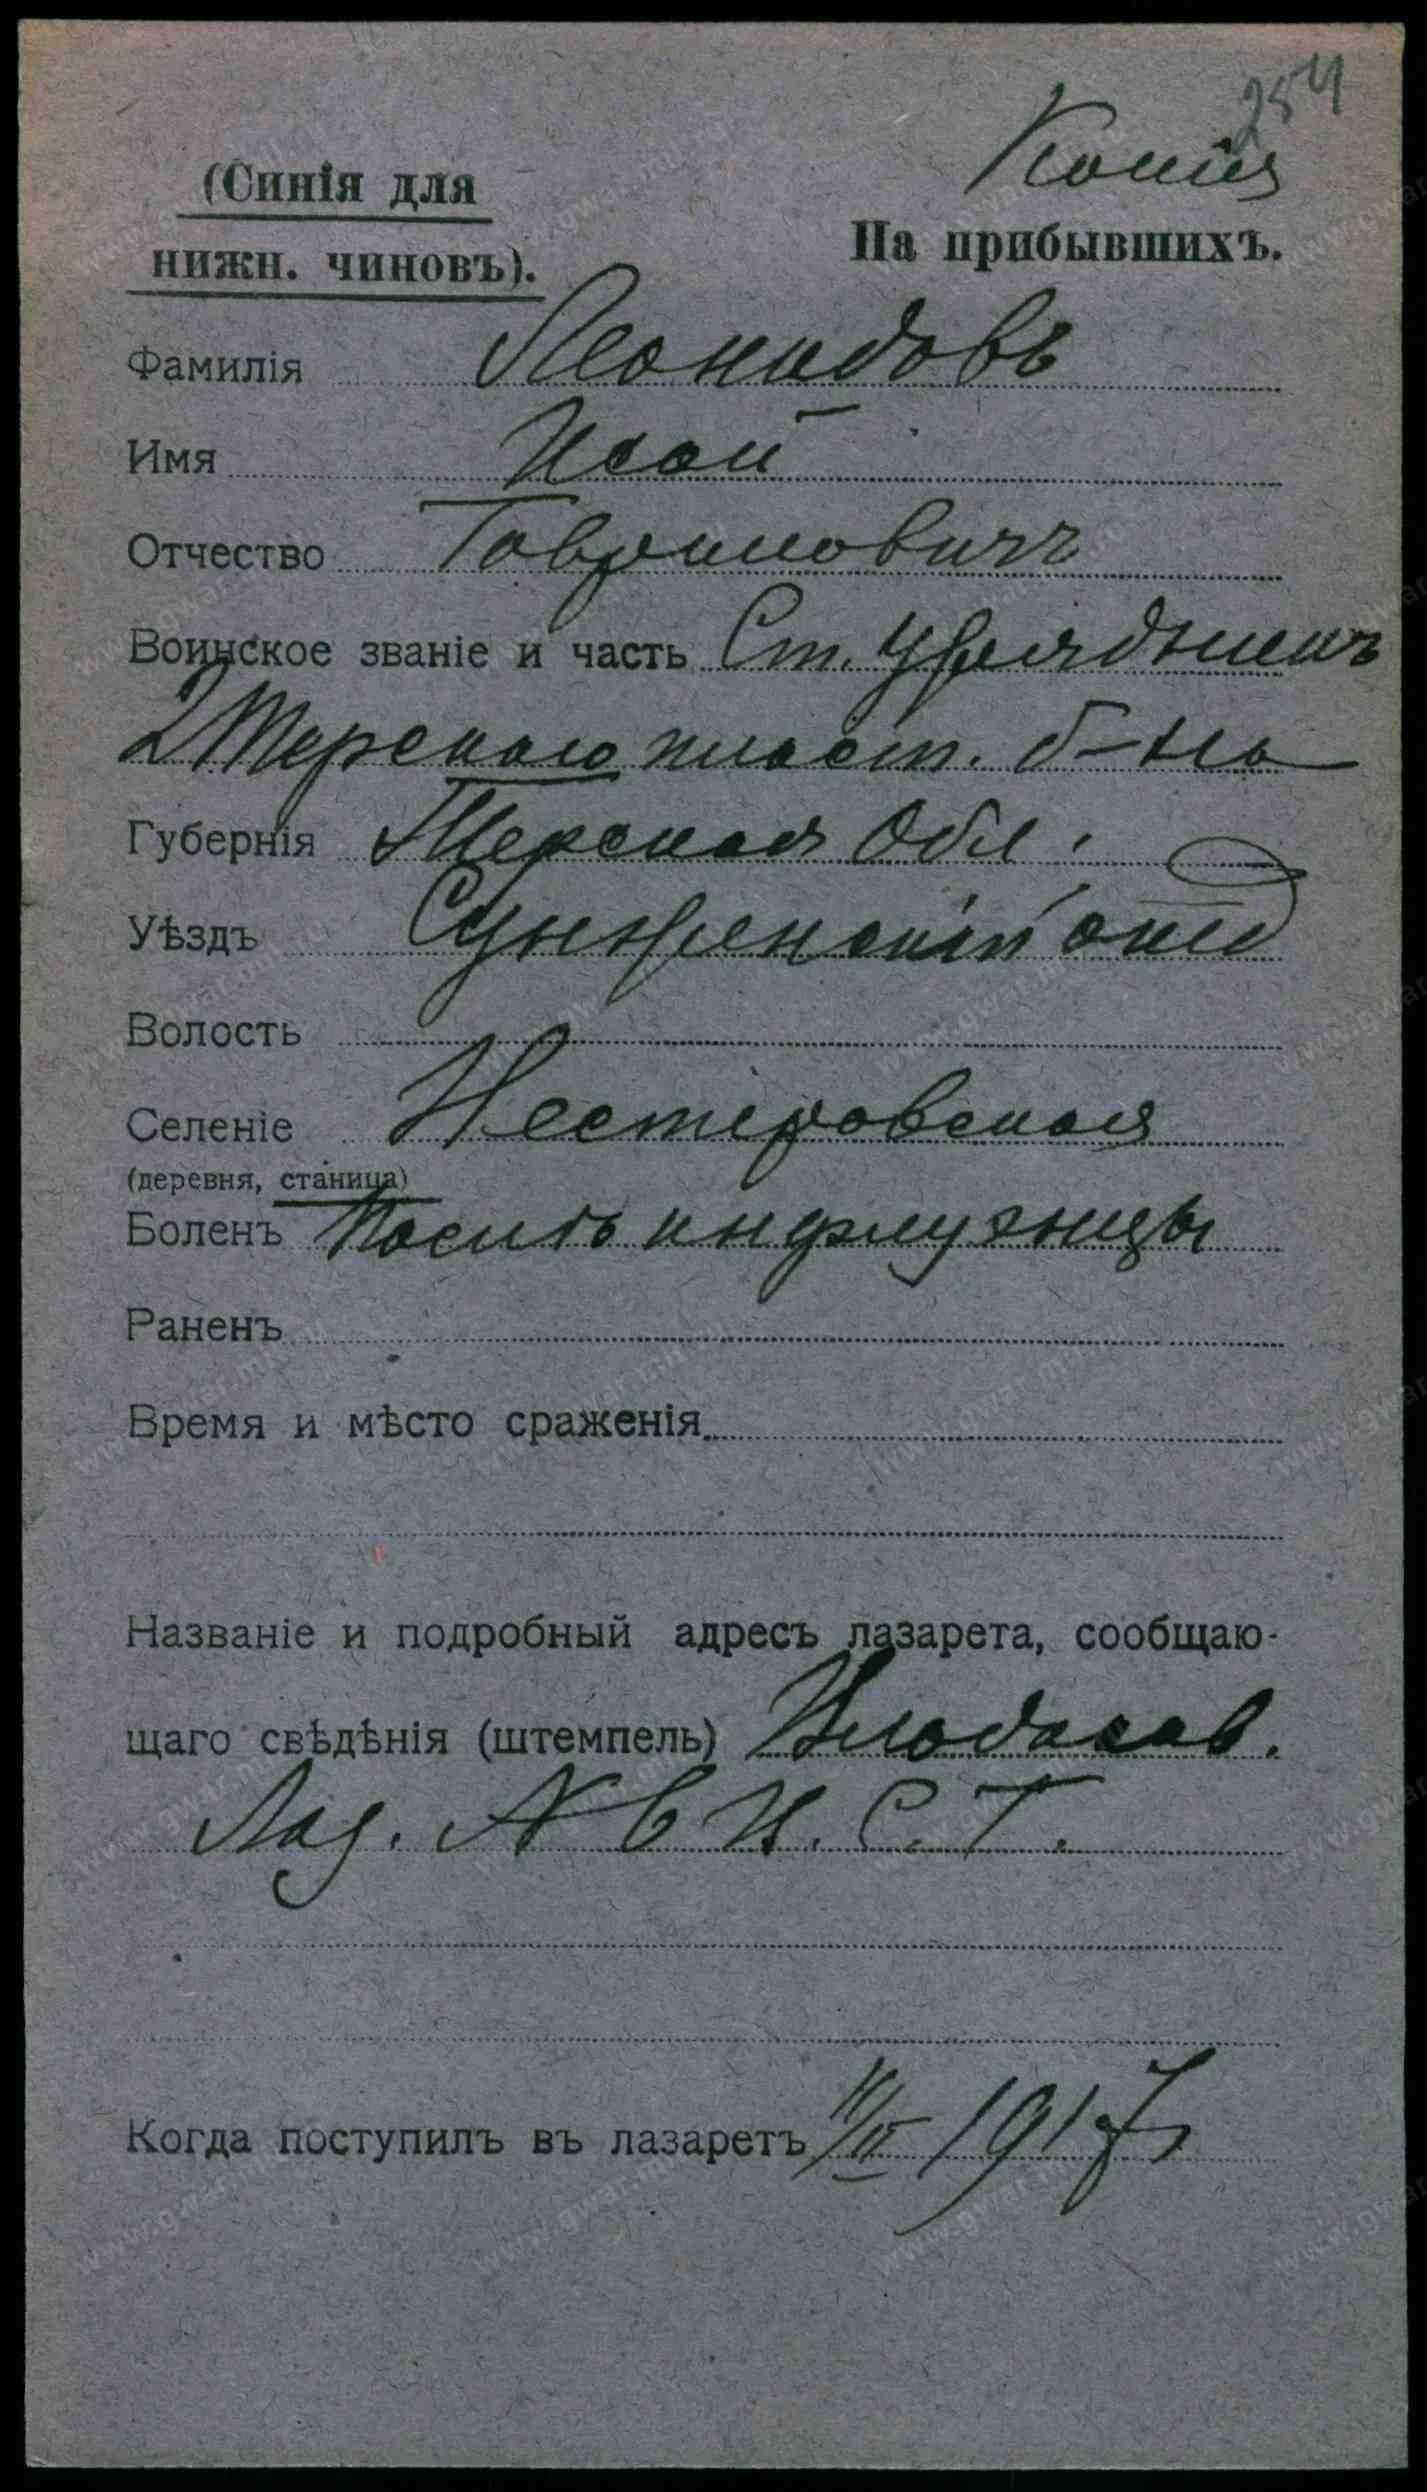 254
Копія
(Синія для
нижн. чиновъ).
На прибывшихъ.
Фамилія Леонидовъ
Имя Исай
Отчество Гавриловичъ
Воинское званіе и часть Ст. Урядникъ
2 Терскаго пласт. б-на
Губернія Терская Обл.
Уѣздъ Сунженскій отд
Волость
Селеніе Нестеровская
(деревня, станица)
Боленъ Послѣ инфлуэнцы
Раненъ
Время и мѣсто сраженія
Названіе и подробный адресъ лазарета, сообщаю-
щаго свѣдѣнія (штемпель) Владикав.
Лаз. № 6 И. С. Т.
Когда поступилъ въ лазаретъ 11/II 1917